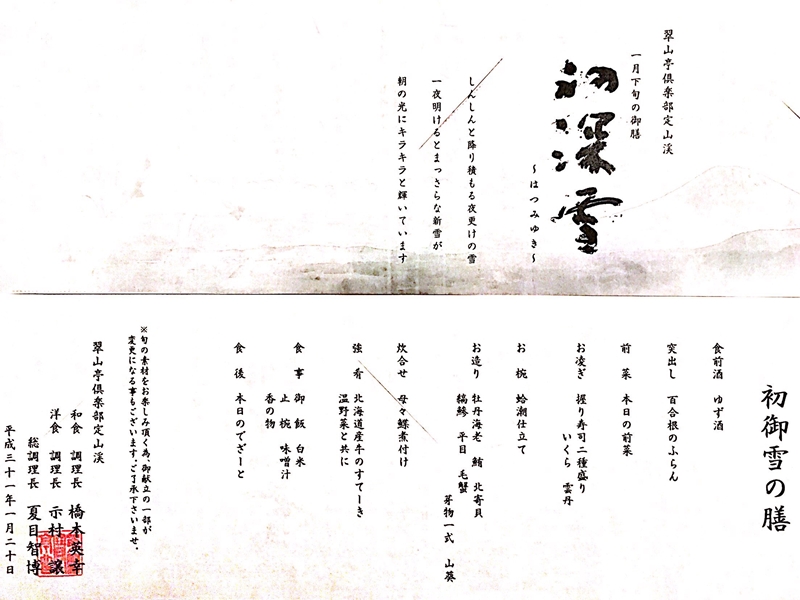 翠山亭倶楽部定山渓
一月下旬の御膳
初深雪
～はつみゆき～
しんしんと降り積もる夜更けの雪
一夜明けるとまっさらな新雪が
朝の光にキラキラと輝いています
初御雪の膳
食前酒　ゆず酒
突出し　百合根のふらん
前　菜　本日の前菜
お凌ぎ　握り寿司二種盛り
いくら　雲丹
お　椀　蛤潮仕立て
お造り　牡丹海老　鮪　北寄貝
縞鯵　平目　毛蟹
芽物一式　山葵
炊合せ　母々鰈煮付け
強　肴　北海道産牛のすてーき
温野菜と共に
食　事　御　飯　白米
止　椀　味噌汁
香の物
食　後　本日のでざーと
※旬の素材をお楽しみ頂く為、御献立の一部が
変更になる事もございます、ご了承下さいませ。
翠山亭倶楽部定山渓
和食　調理長　橋本英幸
洋食　調理長　示村　譲
総調理長　夏目智博
平成三十一年一月二十日